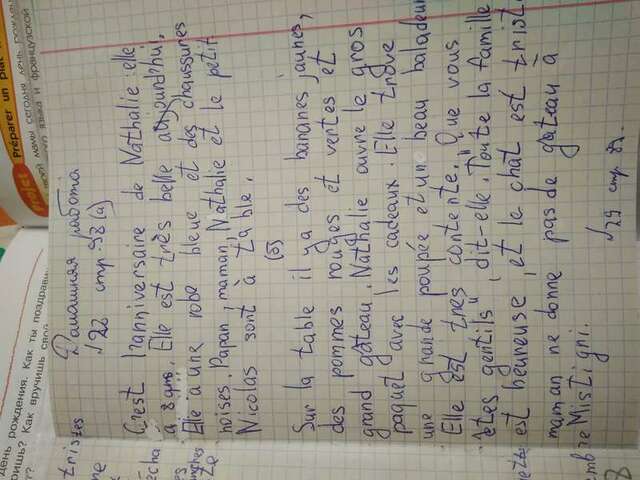 Préparer un plat
Projet
мамы сегодня день рожден
языка и французской
день рождения. Как ты поздрави
Как вручишь сво
Домашняя работа
№22 стр 98 (а)
C'est l'anniversaire de Nathalie: elle
a 8 ans. Elle est très belle aujourd'hui.
Elle a une robe bleue et des chaussures
noires. Papan, maman, Nathalie et le petit
Nicolas sont à table.
(б)
Sur la table il y a des bananes jaunes,
des pommes rouges et vertes et
grand gâteau. Nathalie ouvre le gros
paquet avec les cadeaux. Elle trouve
une grande poupée et un beau baladeur
Elle est très contente. "Que vous
êtes gentils", dit-elle. Toute la famille
est heureuse, et le chat est trist
maman ne donne pas de gâteau à
Mistigri.
№29 стр.
tristes